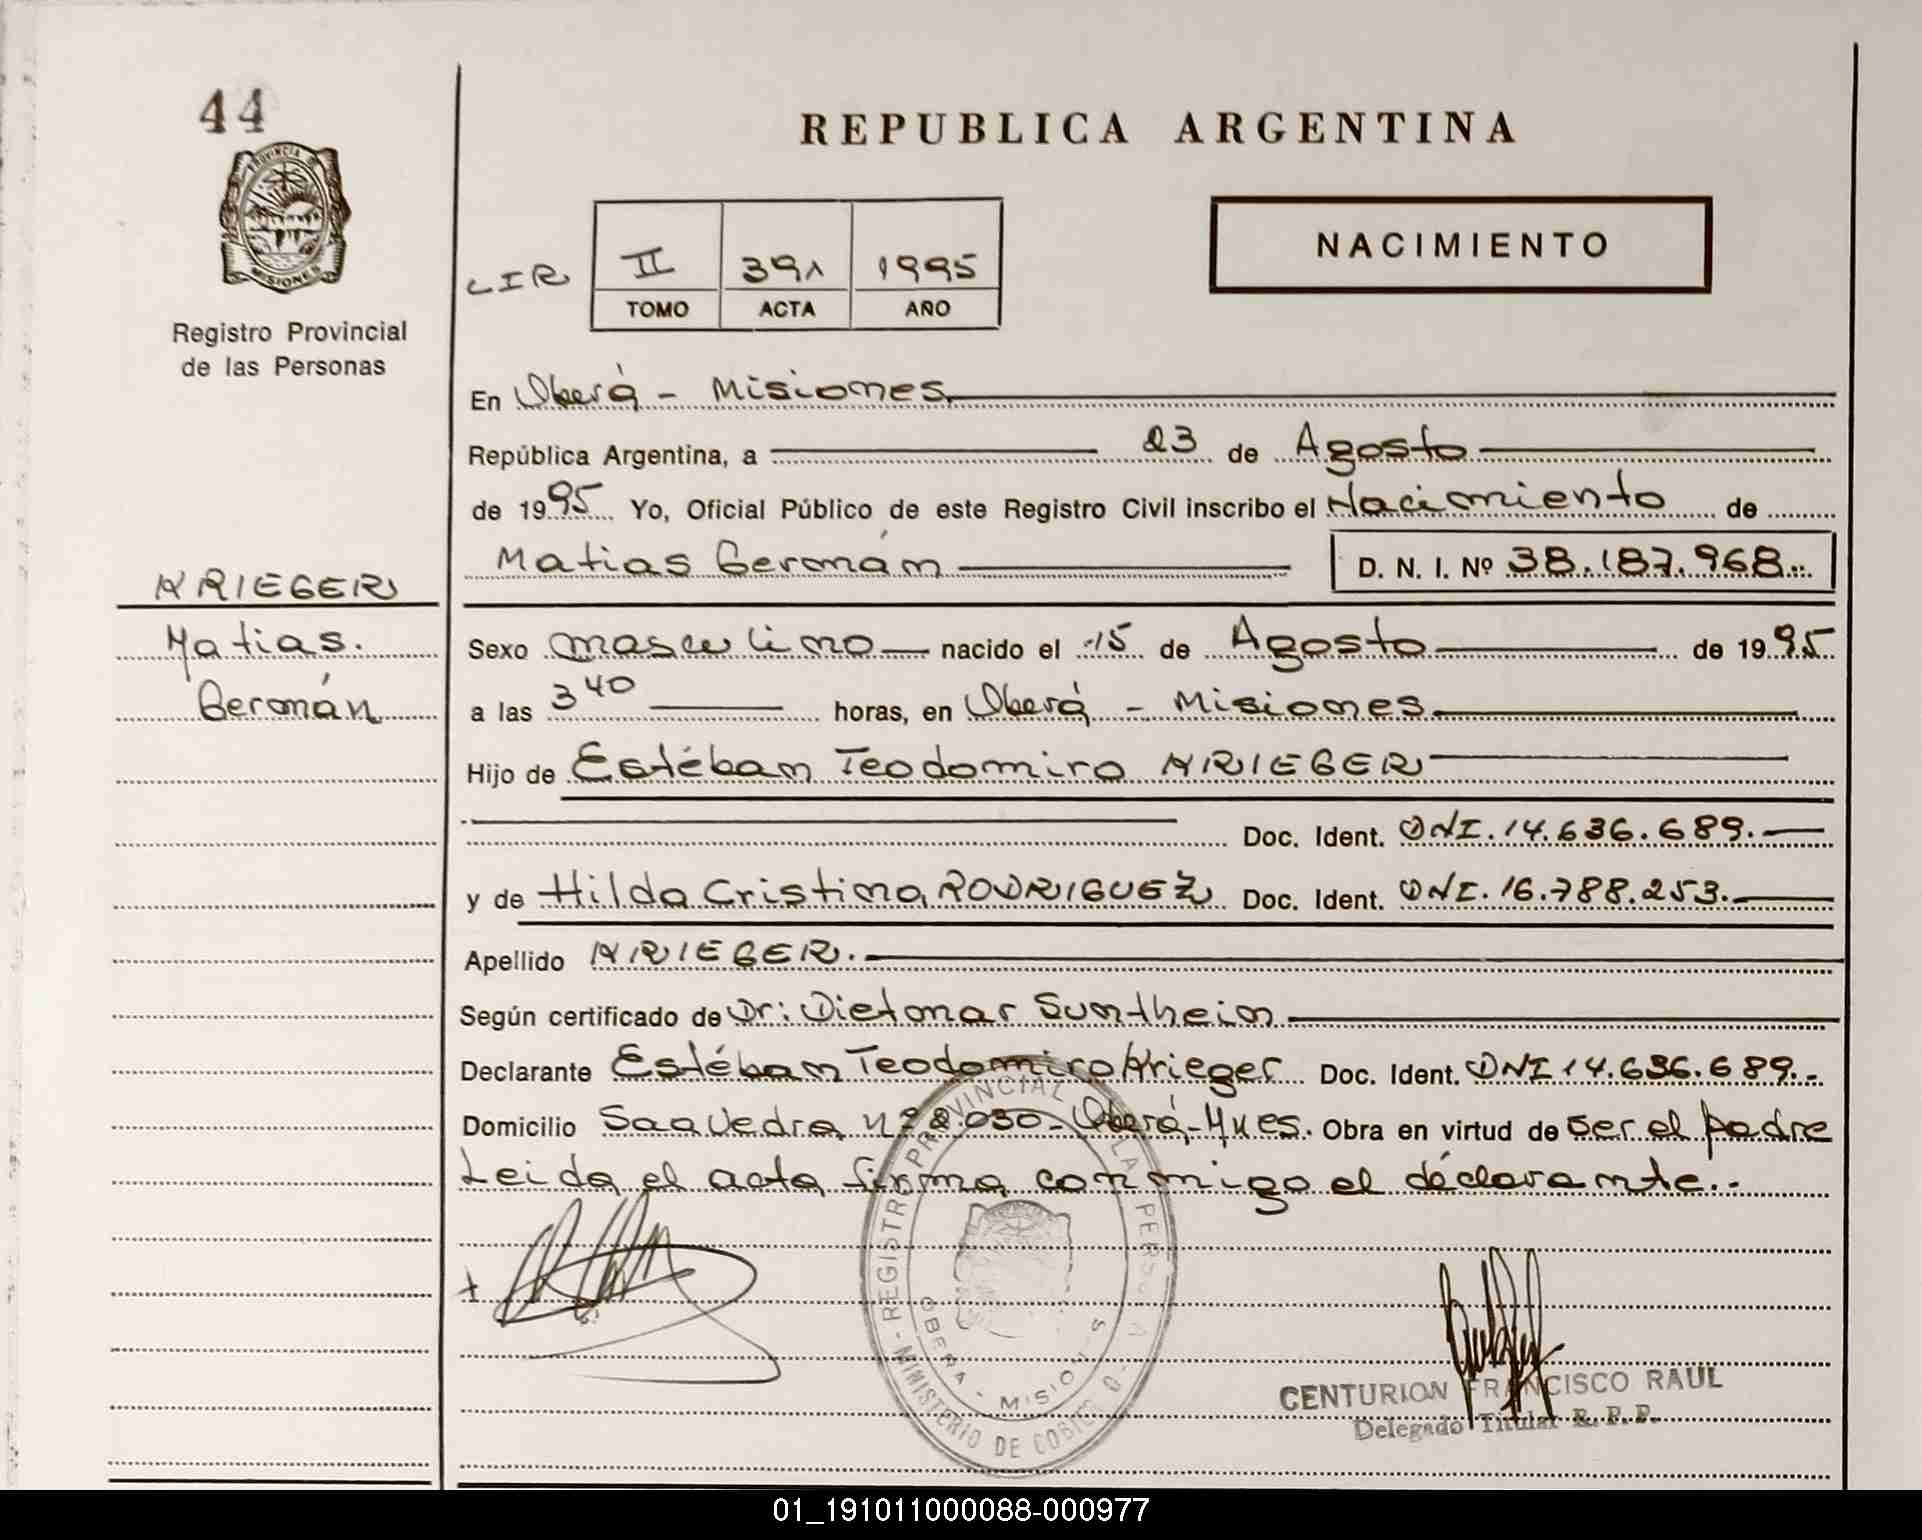 44
PROVINCIA DE
MISIONES
Registro Provincial
de las Personas
KRIEGER
Matias.
Germán
REPUBLICA ARGENTINA
NACIMIENTO
CIR II 391 1995
TOMO ACTA AÑO
En Oberá - Misiones.
República Argentina, a 23 de Agosto
de 1995 Yo, Oficial Público de este Registro Civil inscribo el Nacimiento de
Matias Germán D. N. I. Nº 38.187.968
Sexo masculino nacido el 15 de Agosto de 1995
a las 3 40 horas, en Oberá - Misiones
Hijo de Estéban Teodomiro KRIEGER
Doc. Ident. DNI. 14.636.689.
y de Hilda Cristina RODRIGUEZ Doc. Ident. DNI. 16.788.253.
Apellido KRIEGER.
Según certificado de Dr: Dietmar Suntheim
Declarante Estéban Teodomiro Krieger Doc. Ident. DNI 14.636.689.-
Domicilio Saavedra nº 2.030 - Oberá - Mnes. Obra en virtud de ser el padre
Leida el acta firma conmigo el déclarante..-
REGISTRO PROVINCIAL DE LAS PERSONAS - MINISTERIO DE GOBIERNO -
OBERA - MISIONES
CENTURION FRANCISCO RAUL
Delegado Titular R. P. P.
01_191011000088-000977